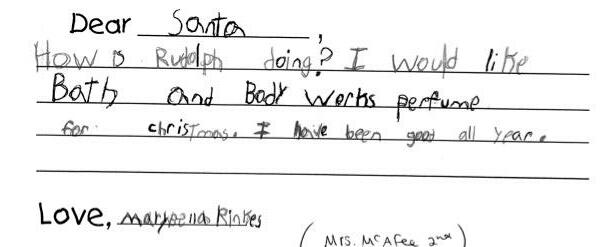 Dear Santa,
How is Rudolph doing? I would like
Bath and Body Works perfume
for christmas. I have been good all year.
Love, Rinkes
(Mrs. McAfee 2nd)